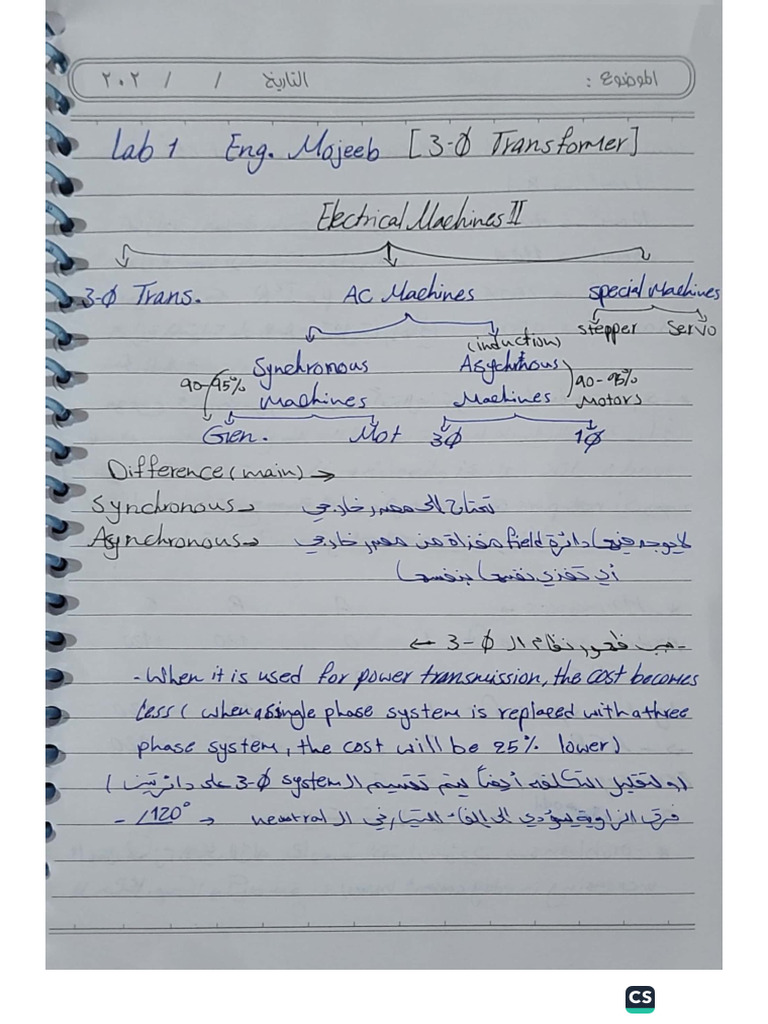 الموضوع :
التاريخ / / ٢٠٢
Lab 1 Eng. Mojeeb [3-Ø Transformer]
Electrical Machines II
3-Ø Trans. AC Machines special Machines
stepper Servo
Synchronous Machines
(induction) Asychronous Machines
90-95%
90-95% Motors
Gen. Mot 3Ø 1Ø
Difference (main) →
Synchronous → تحتاج الى مصدر خارجي
Asynchronous → لا يوجد فيها دائرة field مغذاة من مصدر خارجي
أي تغذي نفسها بنفسها
- سبب ظهور نظام الـ 3-Ø ←
- When it is used for power transmission, the cost becomes
less ( when a single phase system is replaced with a three
phase system, the cost will be 25% lower)
لتقليل التكلفة أيضاً يتم تقسيم الـ 3-Ø system على دائرتين )
فرق الزاوية يؤدي الى الغاء التيار في الـ neutral → 120° -
CS